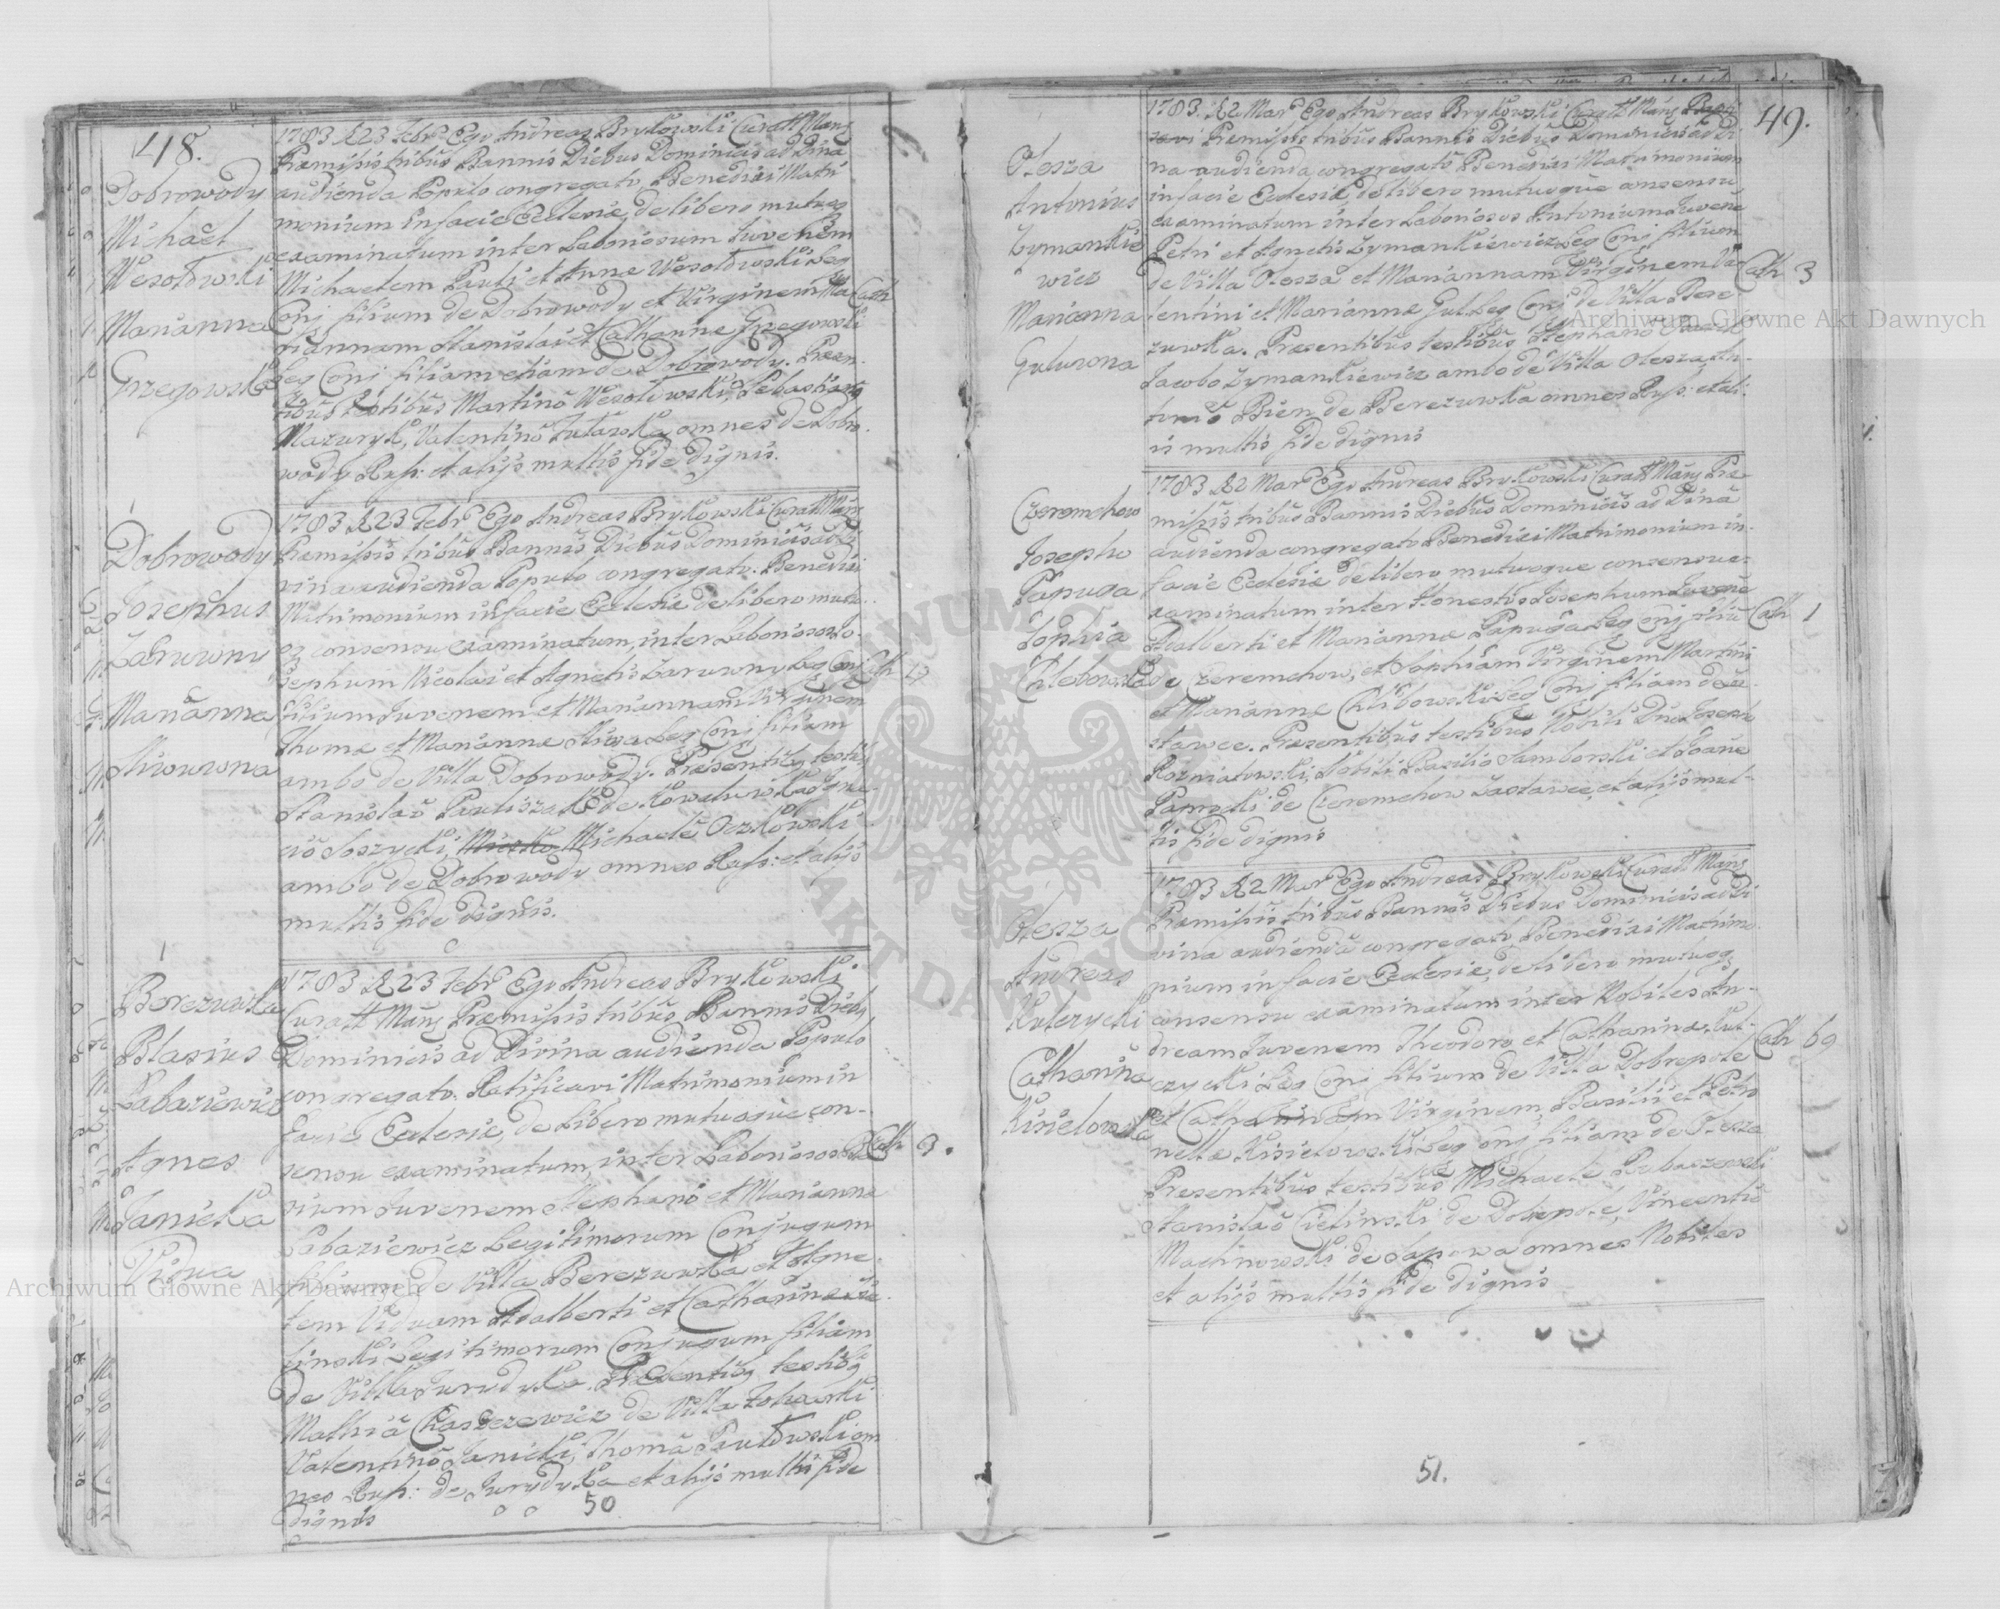 48.
Dobrowody
Michaël
Wesołowski
Marianna
Grzegowska
1783 d 23 Febr Ego Andreas Brykowski Curatt Manz
Præmissis tribus Bannis Diebus Dominicis ad Dina
audienda Populo congregato, Benedixi Matri
monium in facie Ecclesiæ, de libero mutuoq
examinatum inter Laboriosum Juvenem
Michaelem Pauli et Annæ Wesołowski Leg
Conj filium de Dobrowody et Virginem Ma
riannam Stanislai et Catharinæ Grzegowski
Leg Conj filiam etiam de Dobrowody. Præsen-
tibus testibus Martino Wesołowski, Sebastiano
Mazuryk, Valentino omnes de Dobro-
wody Rusp: et alijs multis fide dignis.
Cath
Dobrowody
Josephus
Zaruwny
Marianna
Siwuwna
1783 d 23 Febr Ego Andreas Brykowski Curatt Manz
Præmissis tribus Bannis Diebus Dominicis ad Di
vina audienda Populo congregato. Benedixi
Matrimonium in facie Ecclesiæ de libero mutu
oq consensu examinatum, inter Laboriosos Jo-
sephum Nicolai et Agnetis Zaruwny Leg Conj
filium Juvenem et Mariannam Virginem
Thomæ et Mariannæ Siwa Leg Conj filiam
ambo de Villa Dobrowody. Præsentibq testibq
Stanislao Pauliszak de Kowaluwka Igna-
cio Soszycki, Michaele Oczkowski
ambo de Dobrowody omnes Rusp: et alijs
multis fide dignis.
Cath
Berezuwka
Blasius
Labaziewicz
Agnes
Janicka
Vidua
1783 d 23 Febr Ego Andreas Brykowski
Curatt Manz Præmissis tribus Bannis Diebq
Dominicis ad Divina audienda Populo
congregato. Ratificavi Matrimonium in
facie Ecclesiæ, de libero mutuoque con-
sensu examinatum, inter Laboriosos Bla
sium Juvenem Stephano et Marianna
Labaziewicz Legitimorum Conjugum
filium de Villa Berezuwka et Agne-
tem Viduam Adalberti et Catharinæ
Legitimorum Conjugum filiam
de Villa Jurydyka. Præsentibq testibq
Mathia Chaszczewicz de Villa
Valentino Janicki, Thoma Pawłowski om
nes Rusp: de Jurydyka et alijs multis fide
dignis
Cath 3.
50
49.
Olesza
Antonius
Zymankie
wicz
Marianna
Guluwna
1783. d 2 Mar Ego Andreas Brykowski Curatt Manz
Præmissis tribus Bannis Diebus Dominicis ad Di
na audienda congregato Benedixi Matrimonium
in facie Ecclesiæ, de libero mutuoque consensu
examinatum inter Laboriosos Antonium Juvene
Petri et Agnetis Zymankiewicz Leg Conj filium
de Villa Olesza et Mariannam Virginem Va
lentini et Mariannæ Gul Leg Conj de Villa Bere
zuwka. Præsentibus testibus Stephano
Jacobo Zymankiewicz ambo de Villa Olesza An-
tonio Bien de Berezuwka omnes Rusp: et ali-
is multis fide dignis
Cath 3
Czeremchow
Josephu
Papuga
Sophia
Chlebowska
1783 d 2 Mar Ego Andreas Brykowski Curatt Manz Præ
missis tribus Bannis Diebus Dominicis ad Dina
audienda congregato Benedixi Matrimonium in
facie Ecclesiæ de libero mutuoque consensu e-
xaminatum, inter Honestos Josephum Juvene
Adalberti et Mariannæ Papuga Leg Conj filiu
de Czeremchow, et Sophiam Virginem Martini
et Mariannæ Chlibowski Leg Conj filiam de Za
stawce. Præsentibus testibus Nobili Dno Joseph
Rozniatowski, Nobili Basilio Samborski et Joane
Paprocki de Czeremchow Zastawce, et alijs mul-
tis fide dignis
Cath 1
Olesza
Andreas
Kulczycki
Catharina
Kisielowska
1783 d 2 Mar Ego Andreas Brykowski Curatt Manz
Præmissis tribus Bannis Diebus Dominicis ad Di
vina audienda congregato Benedixi Matrimo
nium in facie Ecclesiæ, de libero mutuoq
consensu examinatum inter Nobiles An-
dream Juvenem Theodoro et Catharina Kul-
czycki Leg Conj filium de Villa Dobropole
et Catharinam Virginem, Basilii et Petro
nellæ Kisielowski Leg Conj filiam de Olesza
Præsentibus testibus Michaele Rubaszewski
Stanislao Cielinski de Dobropole, Vincentio
Machnowski de Sapowa omnes Nobiles
et alijs multis fide dignis
Cath 69
51.
Archiwum Główne Akt Dawnych
Archiwum Główne Akt Dawnych